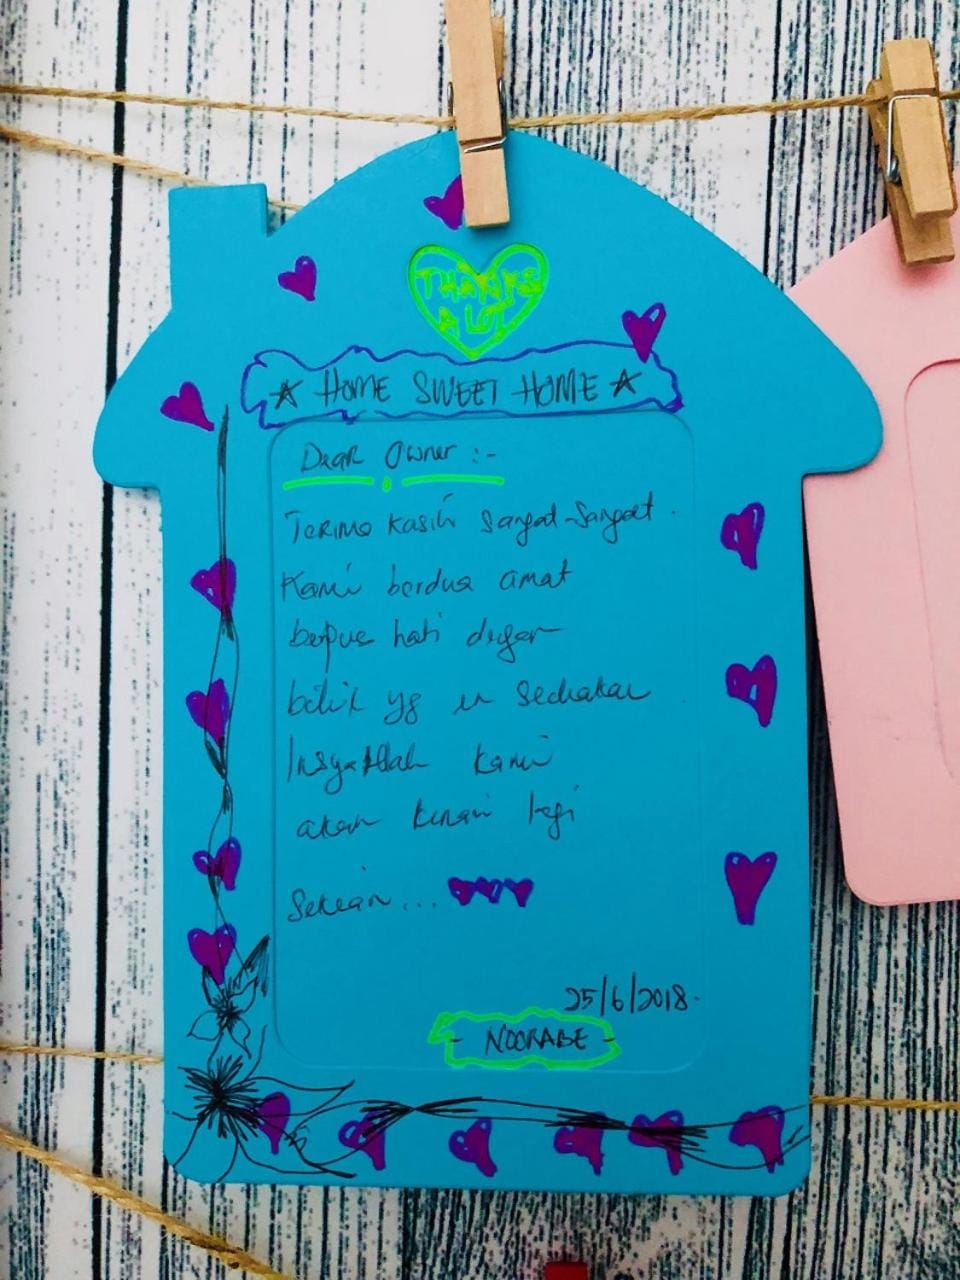 THANKS
A LOT
☆ HOME SWEET HOME ☆
Dear Owner :-
Terima kasih sangat-sangat.
Kami berdua amat
berpuas hati dengan
bilik yg di sediakan
InsyaAllah kami
akan kemari lagi
Sekian...
25/6/2018.
- NOORABE -